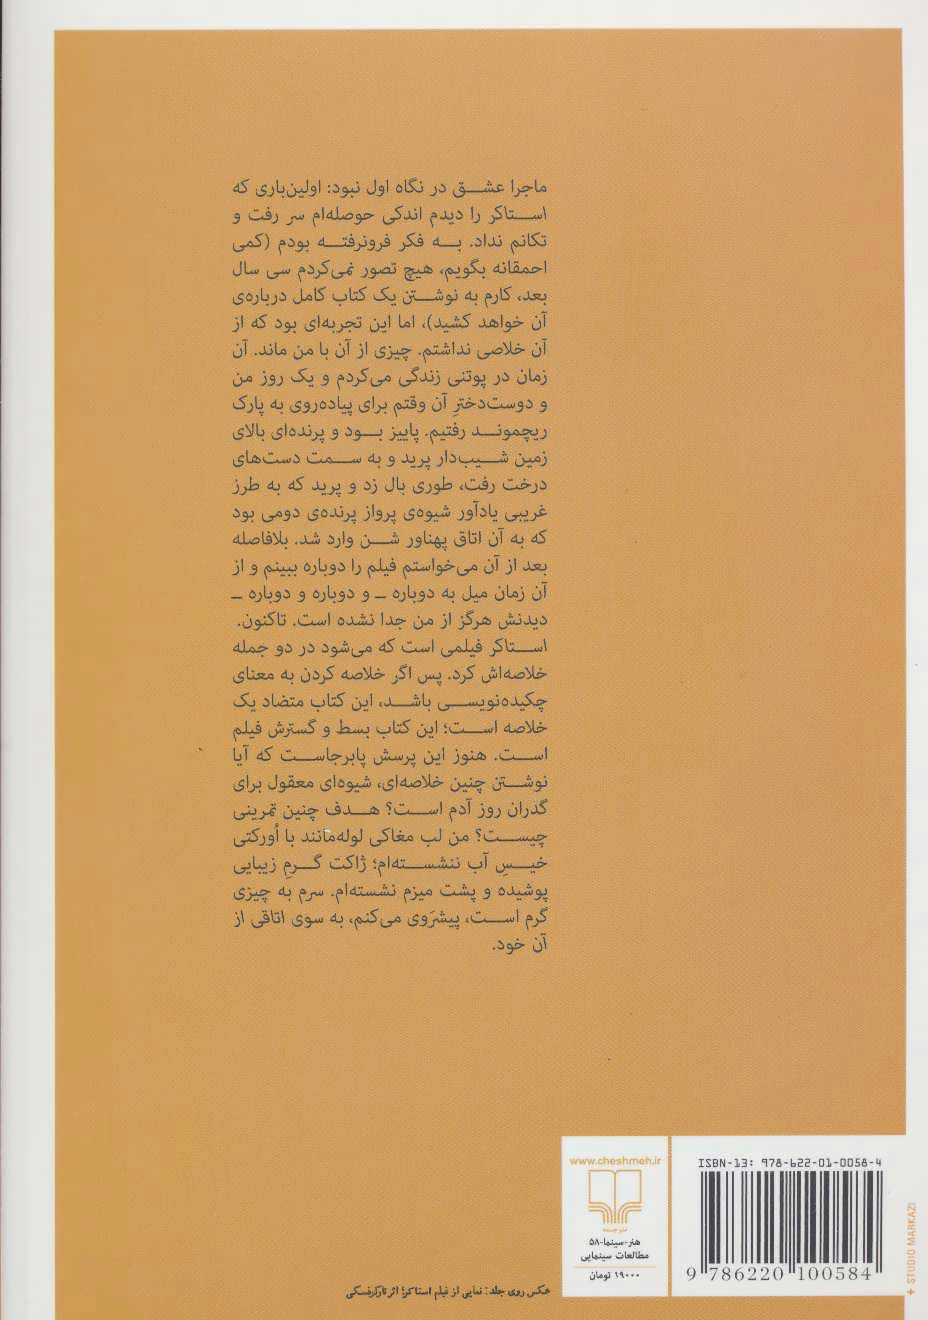 ماجرا عشق در نگاه اول نبود: اولین‌باری که
استاکر را دیدم اندکی حوصله‌ام سر رفت و
تکانم نداد. به فکر فرونرفته بودم (کمی
احمقانه بگویم، هیچ تصور نمی‌کردم سی سال
بعد، کارم به نوشتن یک کتاب کامل درباره‌ی
آن خواهد کشید)، اما این تجربه‌ای بود که از
آن خلاصی نداشتم. چیزی از آن با من ماند. آن
زمان در پوتنی زندگی می‌کردم و یک روز من
و دوست‌دخترِ آن وقتم برای پیاده‌روی به پارک
ریچموند رفتیم. پاییز بود و پرنده‌ای بالای
زمین شیب‌دار پرید و به سمت دست‌های
درخت رفت، طوری بال زد و پرید که به طرز
غریبی یادآور شیوه‌ی پرواز پرنده‌ی دومی بود
که به آن اتاق پهناور شن وارد شد. بلافاصله
بعد از آن می‌خواستم فیلم را دوباره ببینم و از
آن زمان میل به دوباره ــ و دوباره و دوباره ــ
دیدنش هرگز از من جدا نشده است. تاکنون.
استاکر فیلمی است که می‌شود در دو جمله
خلاصه‌اش کرد. پس اگر خلاصه کردن به معنای
چکیده‌نویسی باشد، این کتاب متضاد یک
خلاصه است؛ این کتاب بسط و گسترش فیلم
است. هنوز این پرسش پابرجاست که آیا
نوشتن چنین خلاصه‌ای، شیوه‌ای معقول برای
گذران روز آدم است؟ هدف چنین تمرینی
چیست؟ من لب مغاکی لوله‌مانند با اُورکتی
خیسِ آب ننشسته‌ام؛ ژاکت گرمِ زیبایی
پوشیده و پشت میزم نشسته‌ام. سرم به چیزی
گرم است، پیشرَوی می‌کنم، به سوی اتاقی از
آن خود.
www.cheshmeh.ir
نشر چشمه
هنر-سینما-۵۸
مطالعات سینمایی
۱۹۰۰۰ تومان
ISBN-13: 978-622-01-0058-4
9 786220 100584
+ STUDIO MARKAZI
عکس روی جلد: نمایی از فیلم استاکر؛ اثر تارکوفسکی